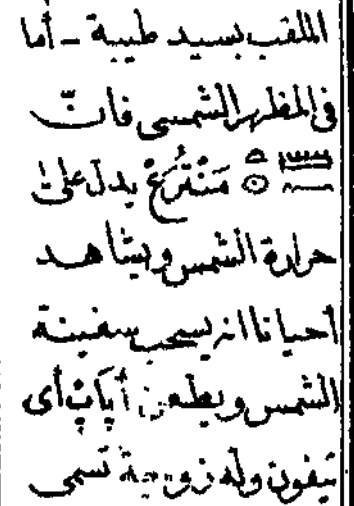 الملقب بسيد طيبة ـ أما
فى المظهر الشمسى فانّ
𓏠𓈖𓏏𓇳 مَنْتُرَعْ يدل على
حرارة الشمس ويشاهد
أحيانا انه يسحب سفينة
الشمس ويطعن أَپَاپْ أى
تيفون وله زوجة تسمى